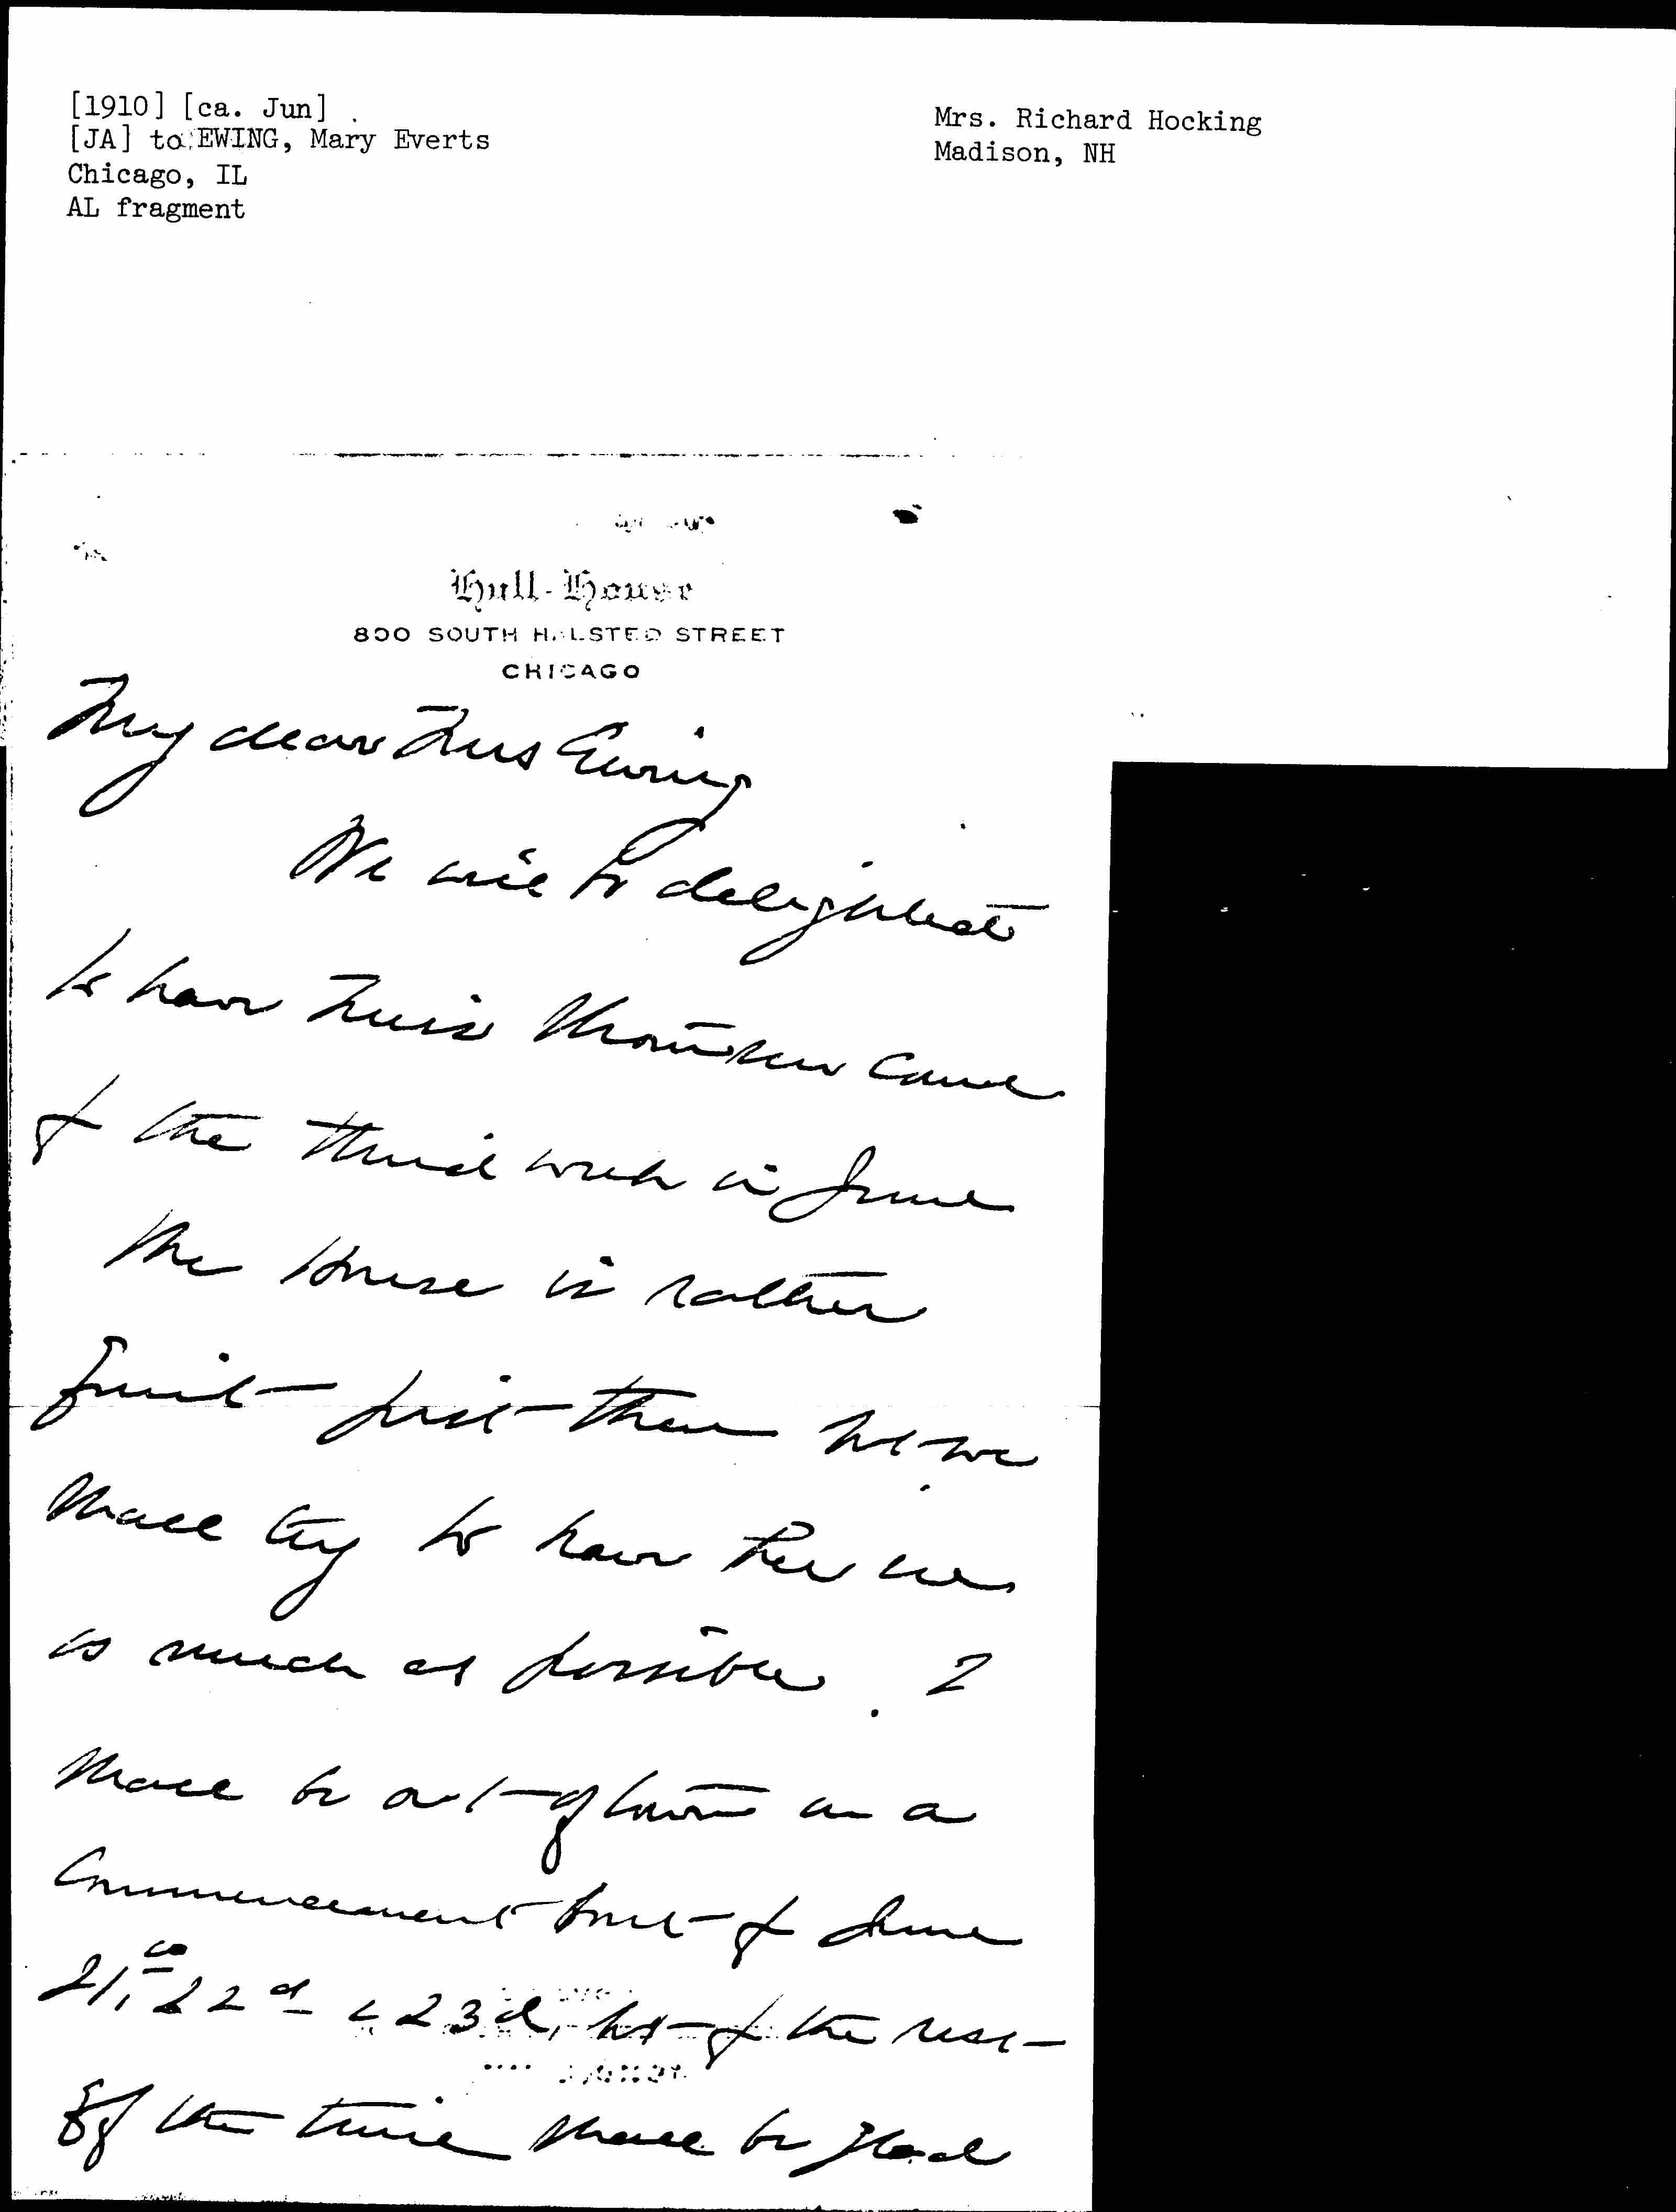 [1910] [ca. Jun]
[JA] to EWING, Mary Everts
Chicago, IL
AL fragment
Mrs. Richard Hocking
Madison, NH
Hull-House
800 SOUTH HALSTED STREET
CHICAGO
My dear Mrs Ewing
We will be delighted
to have Miss come
for the third week in June
The House is rather
quiet just then but we
shall try to have her see
as much as possible. I
shall be out of town on a
Commencement tour for June
21st 22d & 23d, but for the rest
of the time shall be glad